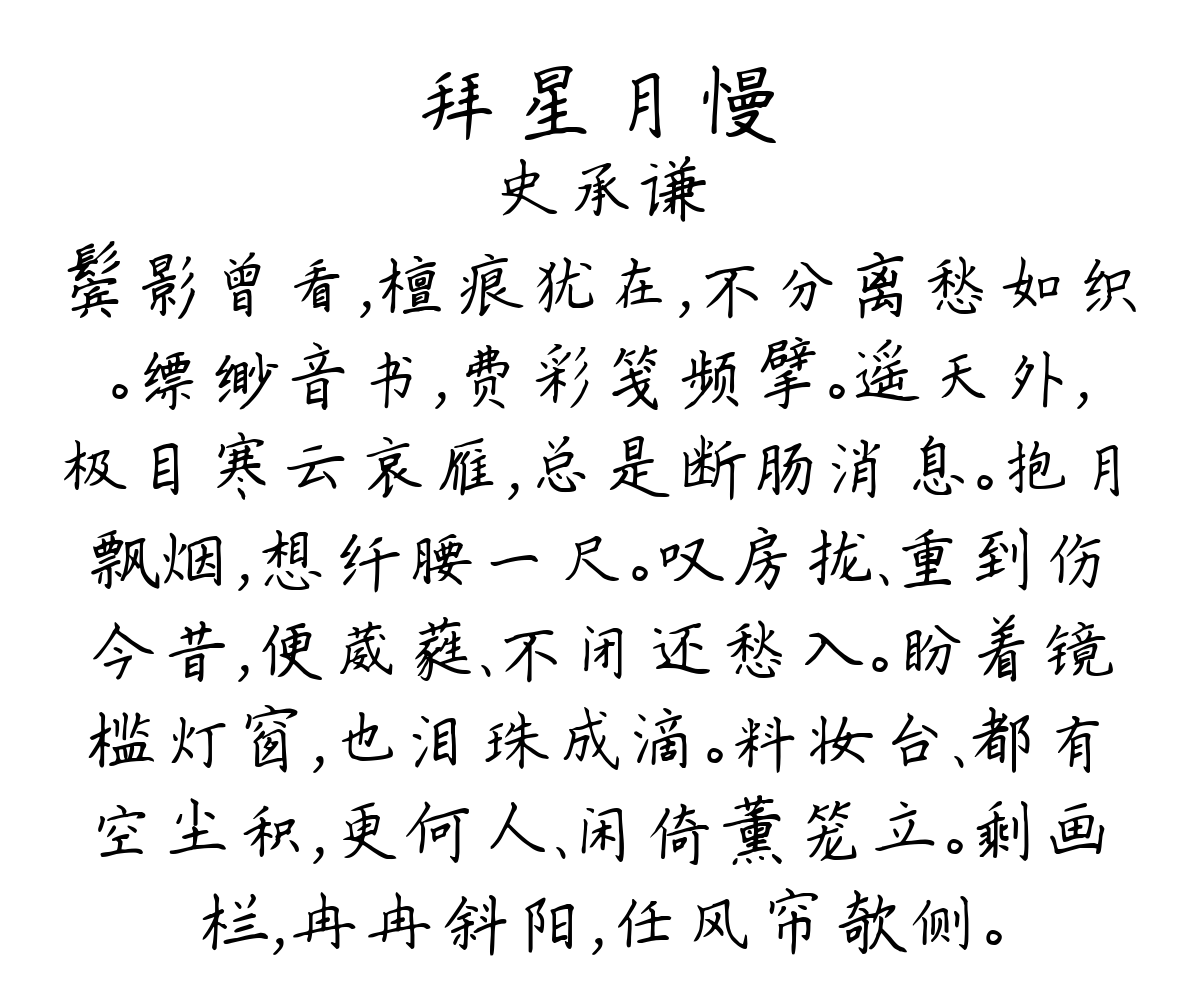 拜星月慢
史承谦
鬓影曾看,檀痕犹在,不分离愁如织
。缥缈音书,费彩笺频擘。遥天外,
极目寒云哀雁,总是断肠消息。抱月
飘烟,想纤腰一尺。叹房拢、重到伤
今昔,便葳蕤、不闭还愁入。盼着镜
槛灯窗,也泪珠成滴。料妆台、都有
空尘积,更何人、闲倚薰笼立。剩画
栏,冉冉斜阳,任风帘欹侧。